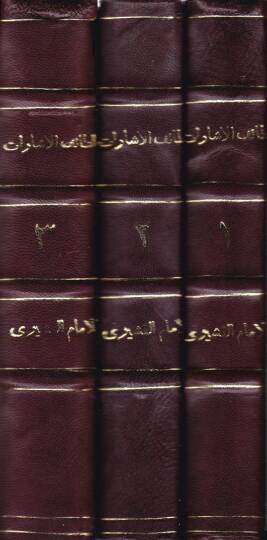 لطائف الاشارات
١
للامام القشيرى
لطائف الاشارات
٢
للامام القشيرى
لطائف الاشارات
٣
للامام القشيرى